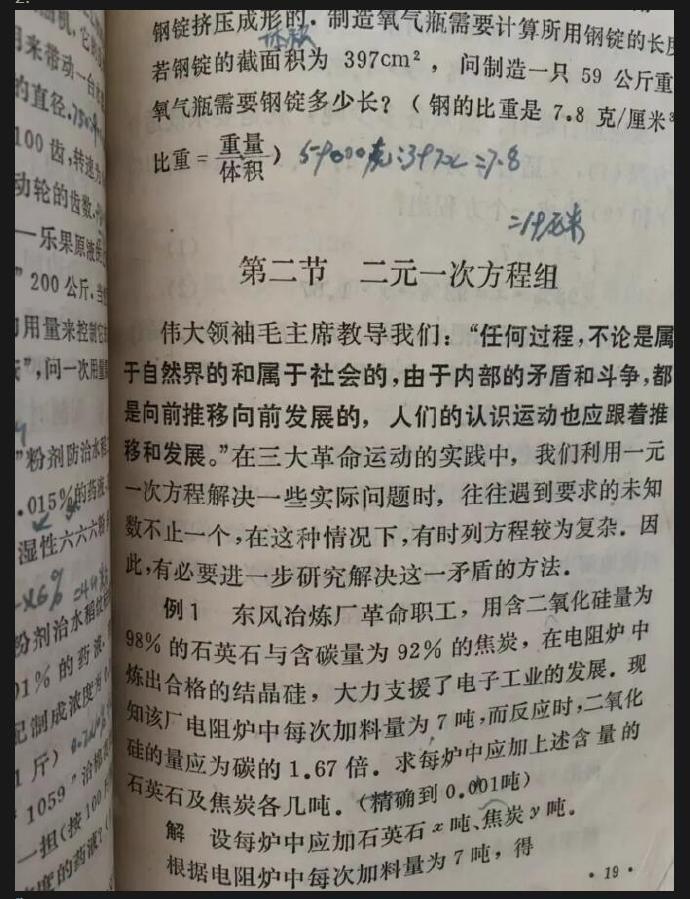 钢锭挤压成形的.制造氧气瓶需要计算所用钢锭的长度
体积
若钢锭的截面积为 397cm²，问制造一只 59 公斤重
氧气瓶需要钢锭多少长？（钢的比重是 7.8 克/厘米³
比重=重量/体积） 59000克÷397x=7.8
=19厘米
第二节 二元一次方程组
伟大领袖毛主席教导我们：“任何过程，不论是属
于自然界的和属于社会的，由于内部的矛盾和斗争，都
是向前推移向前发展的，人们的认识运动也应跟着推
移和发展。”在三大革命运动的实践中，我们利用一元
一次方程解决一些实际问题时，往往遇到要求的未知
数不止一个，在这种情况下，有时列方程较为复杂．因
此，有必要进一步研究解决这一矛盾的方法．
例1 东风冶炼厂革命职工，用含二氧化硅量为
98% 的石英石与含碳量为 92% 的焦炭，在电阻炉中
炼出合格的结晶硅，大力支援了电子工业的发展．现
知该厂电阻炉中每次加料量为 7 吨，而反应时，二氧化
硅的量应为碳的 1.67 倍．求每炉中应加上述含量的
石英石及焦炭各几吨．（精确到 0.001吨）
解 设每炉中应加石英石 x 吨、焦炭 y 吨．
根据电阻炉中每次加料量为 7 吨，得
· 19 ·
用来带动一台
的直径.
100 齿，转速为
动轮的齿数.
—乐果原液
” 200 公斤.
用量来控制
”，问一次用量
”粉剂防治水稻
.015%的药液
湿性六六六粉
粉剂治水稻
01% 的药液.
配制成浓度为
1 斤）
1059 ”治棉
一担（按 100
度的药液?